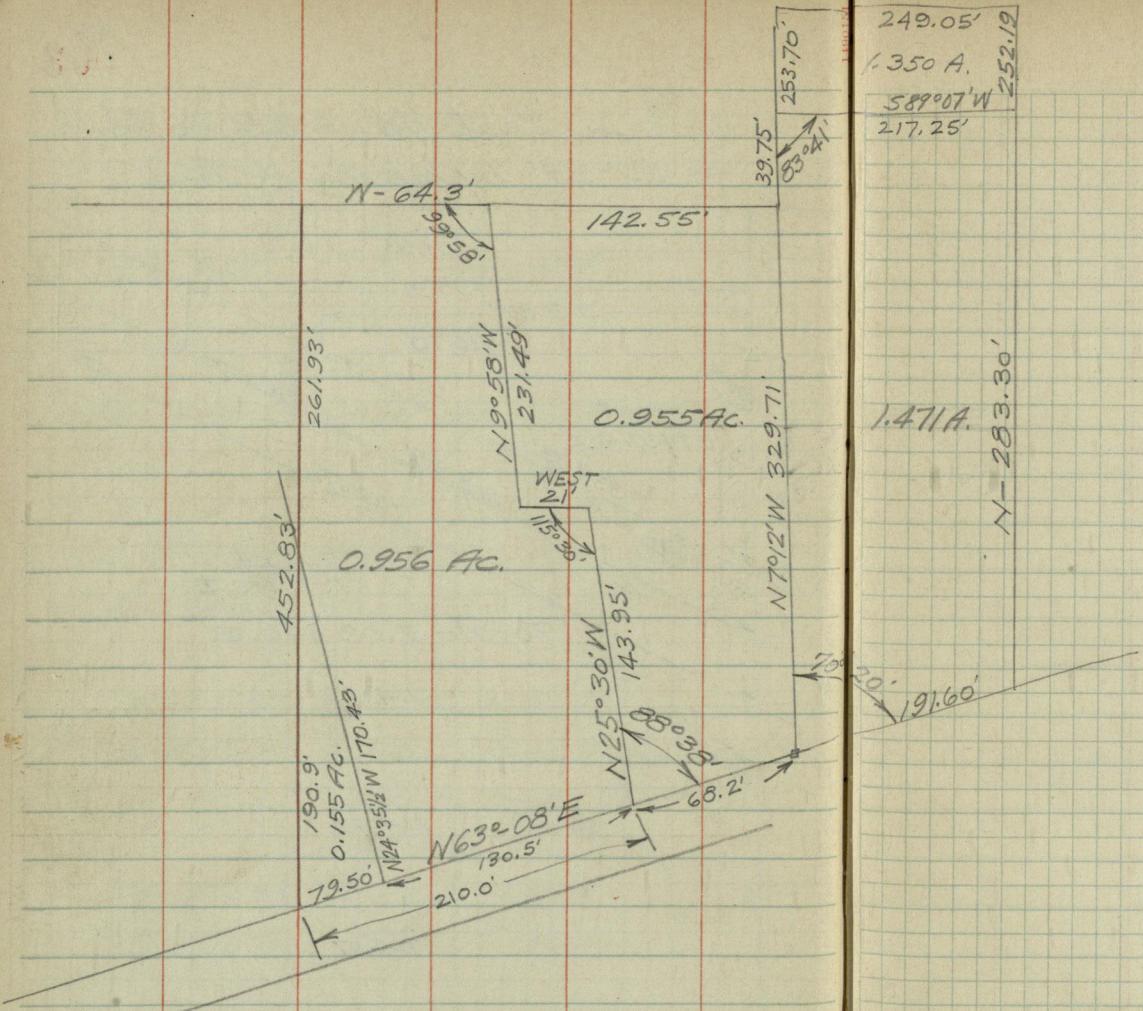 249.05'
253.70'
1.350 A.
252.19
S89°07'W
217.25'
39.75'
83°41'
N-64.3'
99°58'
142.55'
261.93'
N9°58'W
231.49'
0.955 Ac.
N7°12'W 329.71'
1.471 A.
N-283.30'
WEST
21'
115°30'
452.83'
0.956 Ac.
N25°30'W
143.95'
70°20'
191.60'
88°38'
68.2'
190.9'
0.155 Ac.
N24°35½'W 170.43'
N63°-08'E
130.5'
79.50'
210.0'